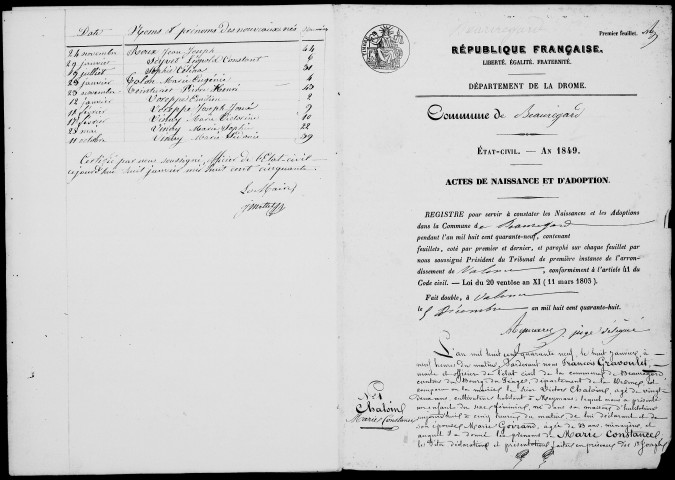 Date Noms et prénoms des nouveaux nés
24 novembre Roux Jean Joseph 44
29 janvier Seyvet Léopold Constant 6
19 juillet Sophie Célina 31
23 janvier Marie Eugénie 4
23 novembre Henri 43
12 janvier 2
11 février Joseph 9
17 février Marie Victorine 10
23 mai Marie Sophie 22
11 octobre Marie 39
Certifié par nous soussigné, officier de l'état-civil
cejourd'hui huit janvier mil huit cent cinquante.
Le Maire
Beauregard
Premier feuillet.
RÉPUBLIQUE FRANÇAISE.
LIBERTÉ, ÉGALITÉ, FRATERNITÉ.
DÉPARTEMENT DE LA DROME.
Commune de Beauregard
ÉTAT-CIVIL. — AN 1849.
ACTES DE NAISSANCE ET D'ADOPTION.
REGISTRE pour servir à constater les Naissances et les Adoptions
dans la Commune de Beauregard
pendant l'an mil huit cent quarante-neuf, contenant
feuillets, coté par premier et dernier, et paraphé sur chaque feuillet par
nous soussigné Président du Tribunal de première instance de l'arron-
dissement de Valence, conformément à l'article 41 du
Code civil. — Loi du 20 ventôse an XI (11 mars 1803)
Fait double, à Valence
le 5 Décembre en mil huit cent quarante-huit.
juge délégué
L'an mil huit cent quarante neuf, le huit janvier, à
neuf heures du matin, Pardevant nous François Gravoulet,
maire et officier de l'état civil de la commune de Beauregard
canton du Bourg du Péage, département de la Drôme, est
comparu en la mairie le sieur Victor Chaloin, âgé de vingt
deux ans, cultivateur habitant à Meymans, lequel nous a présenté
un enfant du sexe féminin, né dans sa maison d'habitation
aujourd'hui à cinq heures du matin de lui déclarant et de
son épouse Marie Govrand, âgée de 23 ans, ménagère, et
auquel il a donné les prénoms de MARIE CONSTANCE
les dites déclaration et présentation faites en présence des Srs Joseph
N° 1
Chaloin
Marie Constance